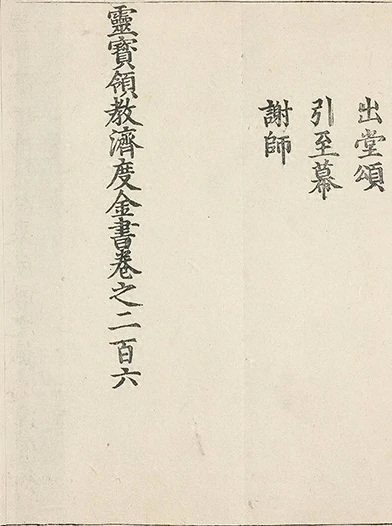 出堂頌
引至幕
謝師
靈寶領教濟度金書卷之二百六